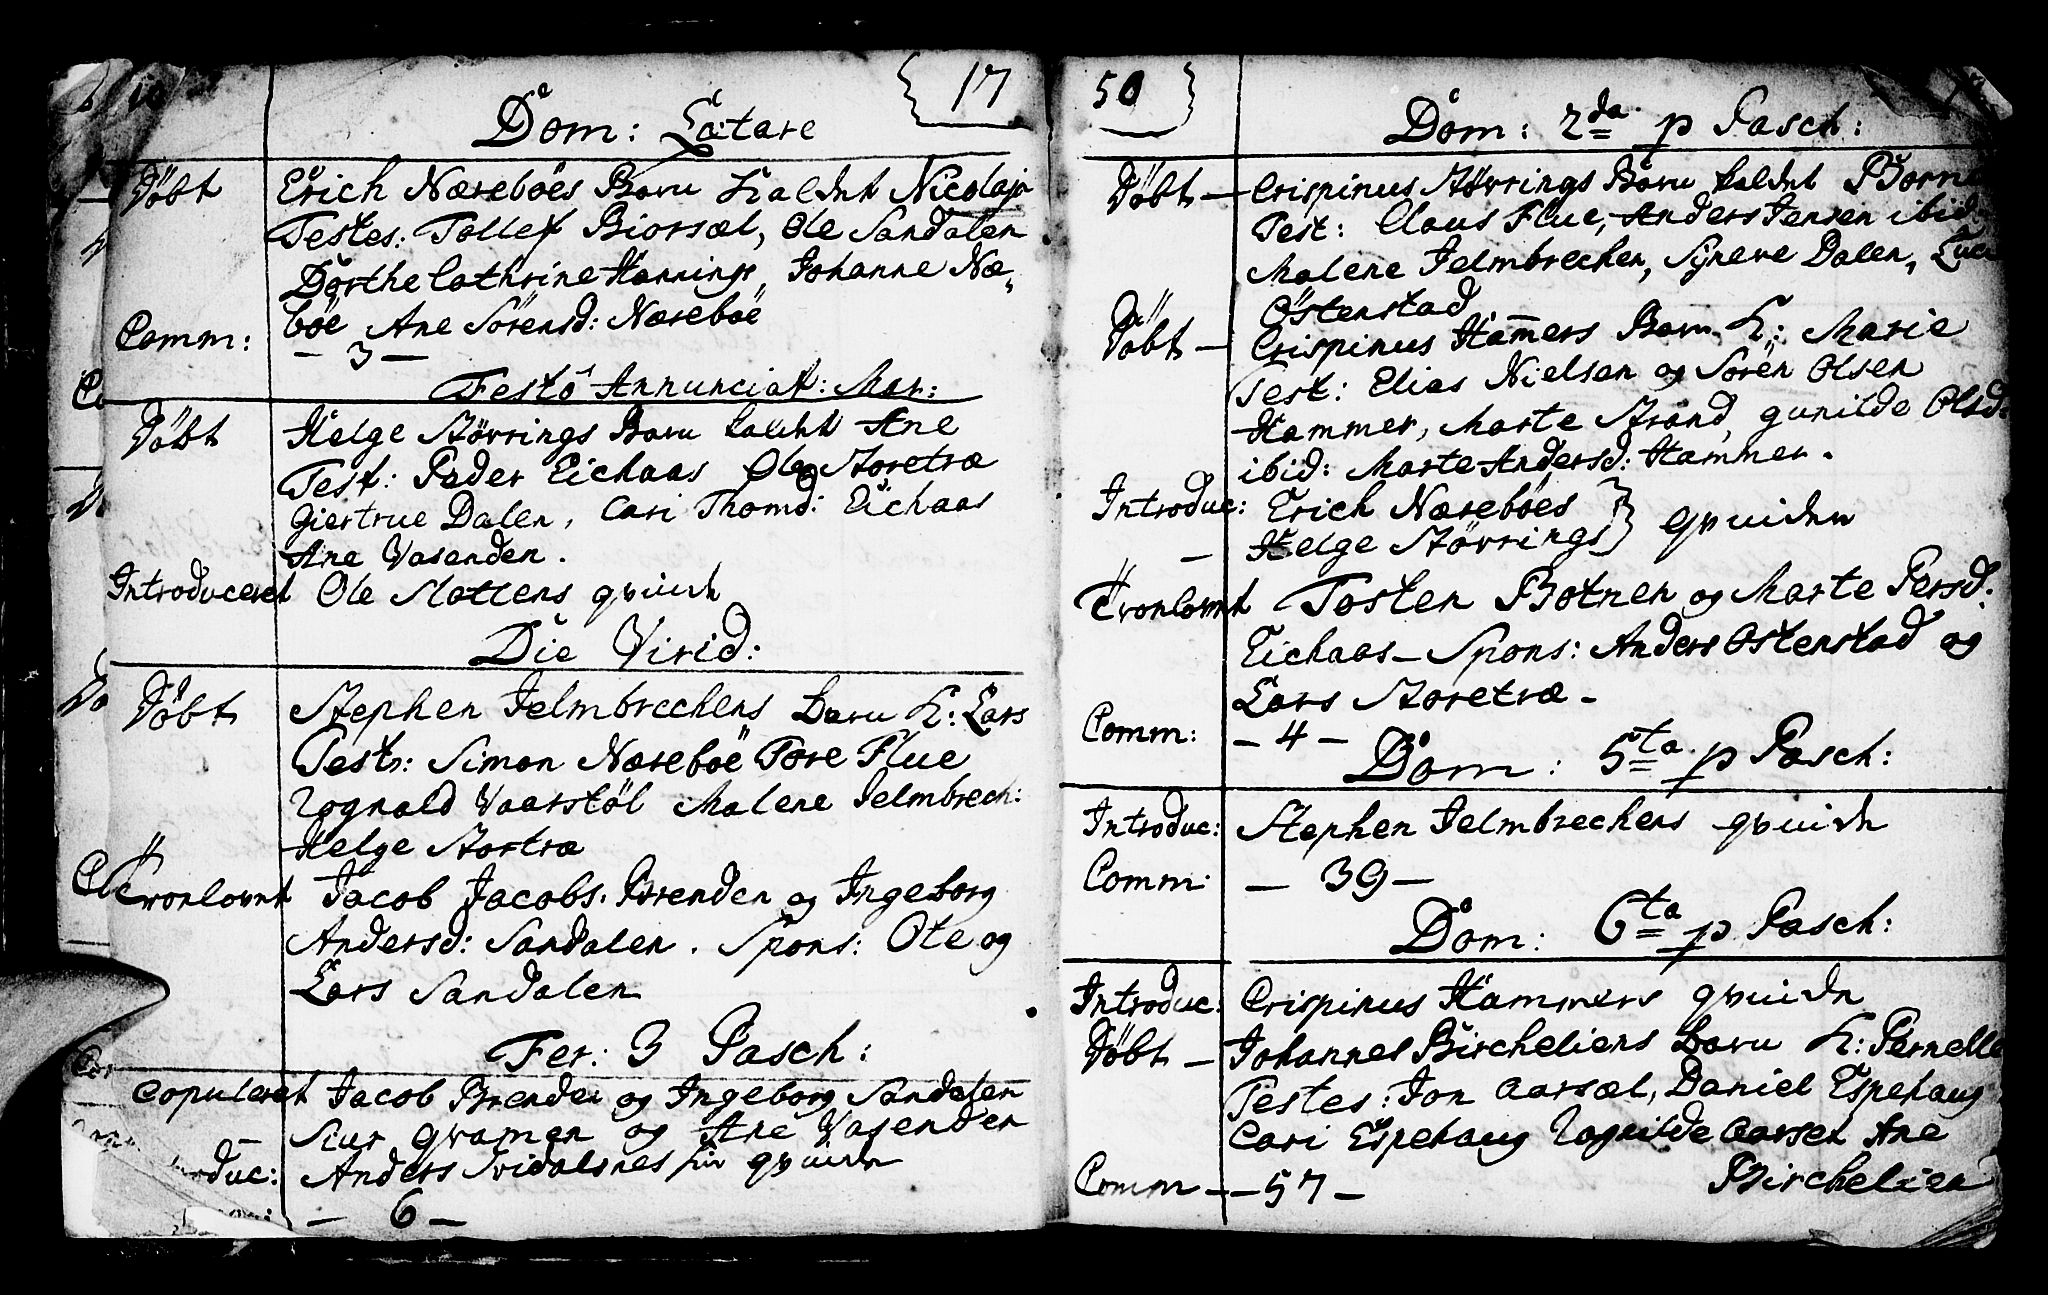 17
Dom: Lætare
Döbt Erich Næreböes Barn Kaldet Nicolaj
Testes: Tollef Biorsæl, Ole Sandalen
Dorthe Cathrine Hannings, Johanne Næ-
böe Ane Sörensd: Næreböe
Comm: - 3 -
Festo Annunciat: Mar:
Döbt Helge Störrings Barn kaldet Ane
Test: Peder Eichaas Ole Storetræ
Giertrue Dalen, Cari Thomd: Eichaas
Ane Vasenden.
Introduceret Ole Slottens qvinde
Die Virid:
Döbt Stephen Jelmbrechens Barn K: Lars
Test: Simon Næreböe Tore Flue
Rognald Vaarstöl Malene Jelmbrech:
Helge Stortræ
Tronlovet Jacob Jacobs. Brenden og Ingeborg
Andersd: Sandalen. Spons: Ole og
Lars Sandalen
Fer: 3 Pasch:
Copuleret Jacob Brenden og Ingeborg Sandalen
- Siur Qvamen og Ane Vasenden
duc: Anders Svidalsnes qvinde
- 6 -
50
Dom: 2da p Pasch:
Döbt - Crispinus Störrings Barn kaldet
Test: Claus Flue, Anders Jensen ibid:
Malene Jelmbrechen, Synere Dalen,
Östenstad
Döbt - Crispinus Hamers Barn K: Marie
Test: Elias Nielsen og Sören Olsen
Hammer, Marte Strand, gunilde Olsd:
ibid: Marte Andersd: Hammer.
Introduc: Erich Næreböes } qvinder
- Helge Störrings
Tronlovet Tosten Botnen og Marte Persd:
Eichaas - Spons: Anders Ostenstad og
Lars Storetræ -
Comm: - 4 -
Dom: 5ta p Pasch:
Introduc: Stephen Jelmbrechens qvinde
Comm: - 39 -
Dom: 6ta p Pasch:
Introduc: Crispinus Hammers qvinde
Döbt - Johannes Bircheliens Barn K: Pernelle
Testes: Jon Aarsæl, Daniel Espehaug
Cari Espehaug Rognilde Aarset Ane
Birchelien
Comm - - 57 -